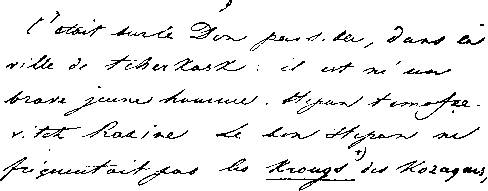 C'était sur le Don paisible, dans la
ville de Tcherkask : il est né un
brave jeune homme, Stepan Timofée-
vitch Razine Le bon Stepan ne
fréquentait pas les Krougs *) des Kozaques,